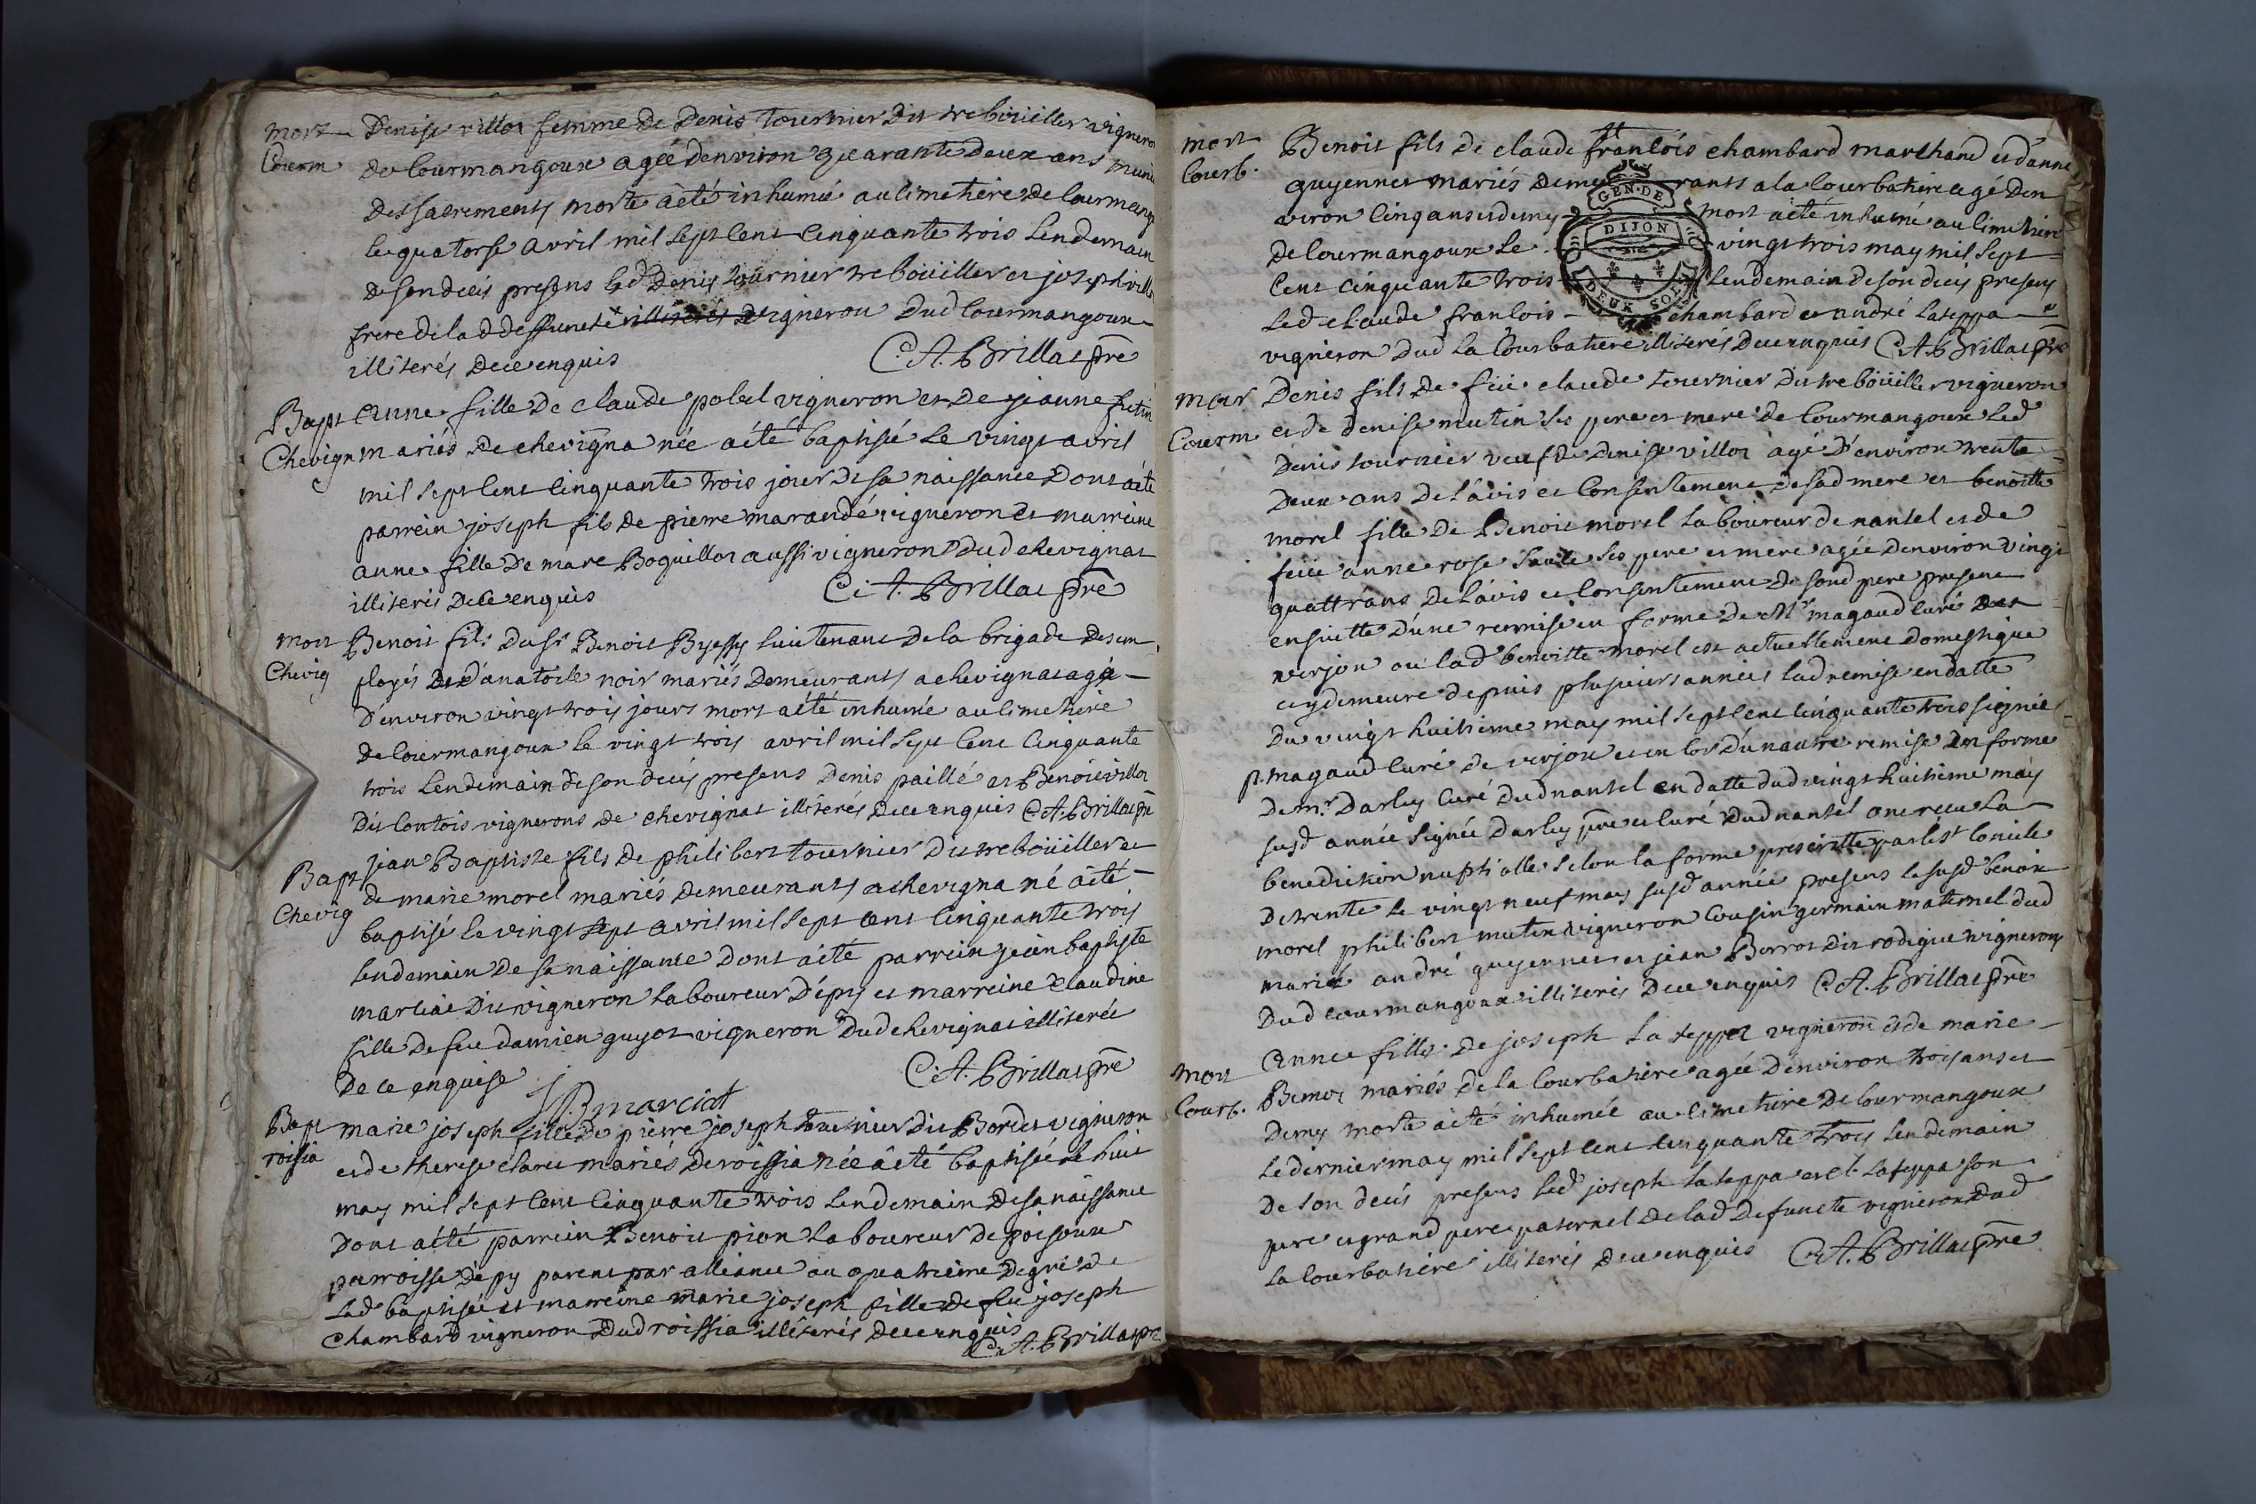 mort Denise villot femme de Denis tournier dit trebouiller vigneron
Courm de Courmangoux agée denviron quarante deux ans munie
des sacrements morte a été inhumée au cimetiere de Courmang
le quatorse avril mil sept cent cinquante trois lendemain
de son decés presens led Denis tournier trebouiller et joseph villo
frere de lad deffuncte vigneron dud Courmangoux
illiterés de ce enquis C.A. Brillat pre
Bapt anne fille de claude pobel vigneron et de jeanne fetin
Chevign mariés de chevigna née a été baptisée le vingt avril
mil sept cent cinquante trois jour de sa naissance dont a été
parrein joseph fils de pierre marandé vigneron et marreine
anne fille de marc Boquillot aussi vigneron dud chevignat
illiterés de ce enquis C.A. Brillat pre
mort Benoit fils du Sr Benoit Byessy lieutenant de la brigade des em
Chevig ployés et d'anatoile noir mariés demeurants a chevignat agé
d'environ vingt trois jours mort a été inhumé au cimetiere
de Courmangoux le vingt trois avril mil sept cent cinquante
trois lendemain de son decés presens Denis paillé et Benoit villot
dit Contois vignerons de chevignat illiterés de ce enquis C.A. Brillat pre
Bapt jean Baptiste fils de philibert tournier dit trebouiller et
Chevig de marie morel mariés demeurants a chevigna né a été
baptisé le vingt sept avril mil sept cent cinquante trois
lendemain de sa naissance dont a été parrein jean baptiste
marciat dit vigneron laboureur d'épy et marreine claudine
fille de feu damien guyot vigneron dud chevignat illiterée
de ce enquise C.A. Brillat pre
JB marciat
Bapt marie joseph fille de pierre joseph tournier dit Bordet vigneron
roissia et de therese claret mariés de roissia née a été baptisée le huit
may mil sept cent cinquante trois lendemain de sa naissance
dont a été parrein Benoit pion laboureur de poisoux
parroisse d'épy parent par alliance au quatrieme degré de
lad baptisée et marreine marie joseph fille de feu joseph
chambard vigneron dud roissia illiterés de ce enquis
C.A. Brillat pre
mort Benoit fils de claude francois chambard marchand et d'anne
Courb. guyennet mariés demeurants a la Courbatiere agé den
viron cinq ans et demy mort a été inhumé au cimetiere
de Courmangoux le vingt trois may mil sept
cent cinquante trois lendemain de son decés presens
led claude francois chambard et andré lateppa
vigneron dud la Courbatiere illiterés de ce enquis C.A. Brillat pre
GEN. DE
DIJON
DEUX SOLS
mar Denis fils de feu claude tournier dit trebouiller vigneron
Courm et de denise mutin ses pere et mere de Courmangoux led
Denis tournier veuf de Denise villot agé d'environ trente
deux ans de l'avis et consentement de sad mere et benoitte
morel fille de Benoit morel laboureur de nantel et de
feue anne rose ses pere et mere agée denviron vingt
quattr'ans de l'avis et consentement de sond pere present
ensuitte d'une remise en forme de Mr magaud curé de
verjon ou lad benoitte morel est actuellement domestique
et y demeure depuis plusieurs années lad remise en datte
du vingt huitieme may mil sept cent cinquante trois signée
p. magaud curé de verjon et en lor d'un autre remise en forme
de mr. Darley curé dud nantel en datte dud vingt huitieme may
susd année signée Darley pre et curé dud nantel ont receu la
benediction nuptialle selon la forme prescritte par le St Concile
de trente le vingt neuf may susd année presens le susd benoit
morel philibert mutin vigneron Cousin germain maternel dud
marié andré guyennet et jean Borrot dit rodigue vignerons
dud Courmangoux illiterés de ce enquis C.A. Brillat pre
mort anne fille de joseph la teppa vigneron et de marie
Courb. Bemot mariés de la Courbatiere agée d'environ trois ans et
demy morte a été inhumée au cimetiere de Courmangoux
le dernier may mil sept cent cinquante trois lendemain
de son decés presens led joseph la teppa et cl. lateppa son
pere et grand pere paternel de lad defuncte vignerons dud
la Courbatiere illiterés de ce enquis C.A. Brillat pre